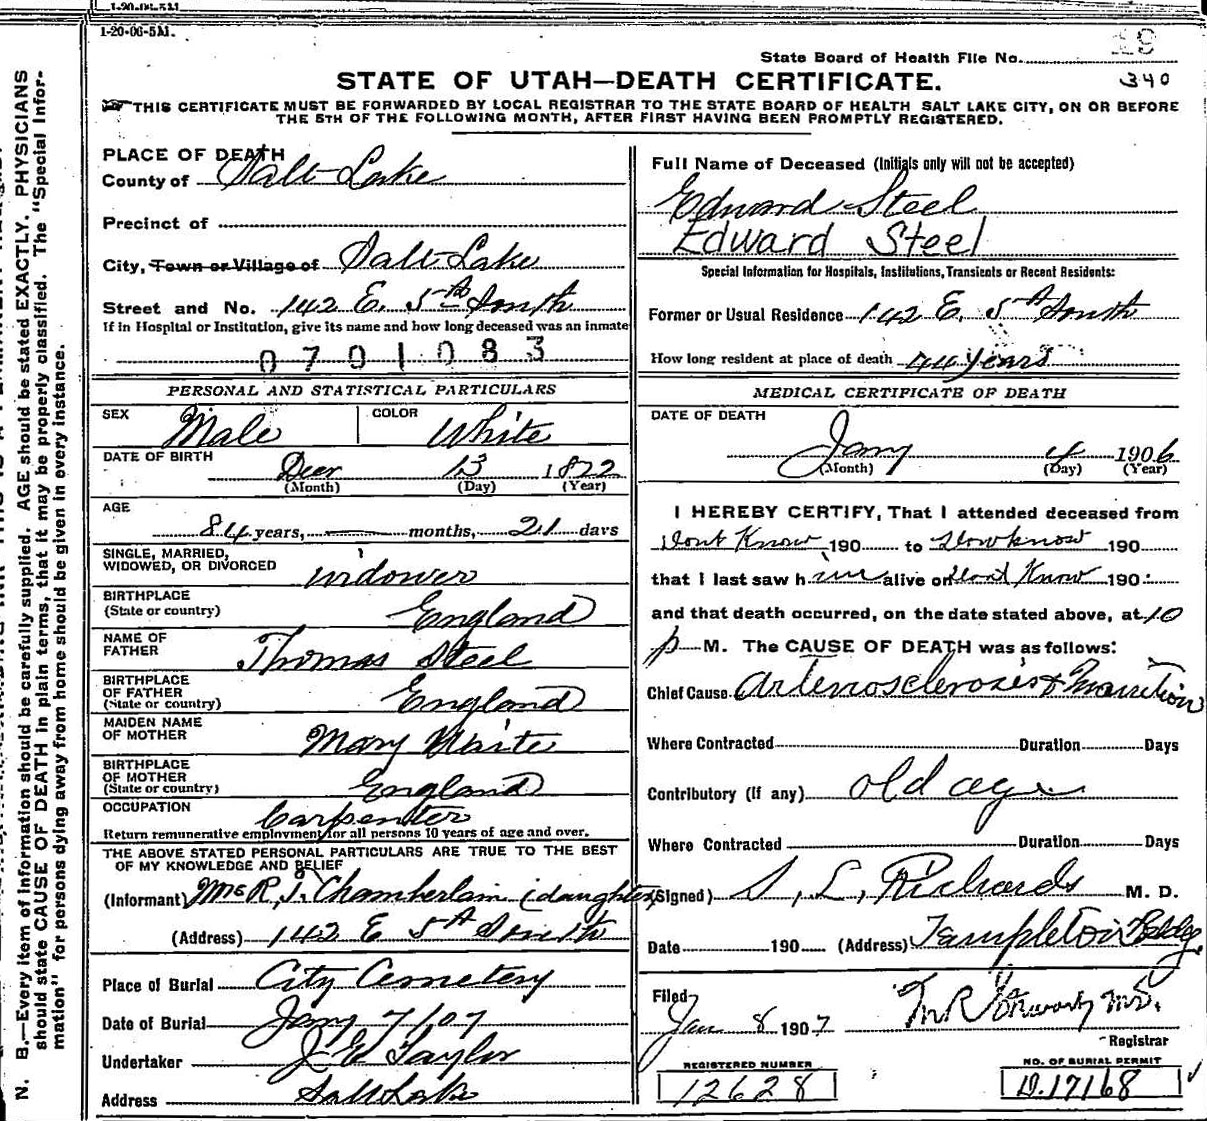 1-20-06-5M.
1-20-06-5M.
State Board of Health File No. 19
STATE OF UTAH—DEATH CERTIFICATE. 340
THIS CERTIFICATE MUST BE FORWARDED BY LOCAL REGISTRAR TO THE STATE BOARD OF HEALTH SALT LAKE CITY, ON OR BEFORE
THE 5TH OF THE FOLLOWING MONTH, AFTER FIRST HAVING BEEN PROMPTLY REGISTERED.
N. B.—Every item of information should be carefully supplied. AGE should be stated EXACTLY. PHYSICIANS
should state CAUSE OF DEATH in plain terms, that it may be properly classified. The "Special Infor-
mation" for persons dying away from home should be given in every instance.
PLACE OF DEATH
County of Salt Lake
Precinct of
City, Town or Village of Salt Lake
Street and No. 142 E. 5th South
If in Hospital or Institution, give its name and how long deceased was an inmate
0701083
PERSONAL AND STATISTICAL PARTICULARS
SEX Male COLOR White
DATE OF BIRTH Decr 13 1822
(Month) (Day) (Year)
AGE
84 years, — months, 21 days
SINGLE, MARRIED,
WIDOWED, OR DIVORCED widower
BIRTHPLACE
(State or country) England
NAME OF
FATHER Thomas Steel
BIRTHPLACE
OF FATHER
(State or country) England
MAIDEN NAME
OF MOTHER Mary Waite
BIRTHPLACE
OF MOTHER
(State or country) England
OCCUPATION Carpenter
Return remunerative employment for all persons 10 years of age and over.
THE ABOVE STATED PERSONAL PARTICULARS ARE TRUE TO THE BEST
OF MY KNOWLEDGE AND BELIEF
(Informant) Mrs R. J. Chamberlain (daughter)
(Address) 142 E 5th South
Place of Burial City Cemetery
Date of Burial Jany 7/07
Undertaker J E Taylor
Address Salt Lake
Full Name of Deceased (Initials only will not be accepted)
Edward Steel
Edward Steel
Special Information for Hospitals, Institutions, Transients or Recent Residents:
Former or Usual Residence 142 E. 5th South
How long resident at place of death 44 years
MEDICAL CERTIFICATE OF DEATH
DATE OF DEATH
Jany 4 1906
(Month) (Day) (Year)
I HEREBY CERTIFY, That I attended deceased from
Dont Know 190 to Dont know 190
that I last saw him alive on Dont Know 190
and that death occurred, on the date stated above, at 10
p M. The CAUSE OF DEATH was as follows:
Chief Cause Arteriosclerosis &
Where Contracted Duration Days
Contributory (if any) old age
Where Contracted Duration Days
(Signed) S. L. Richards M. D.
Date 190 (Address) Templeton Bldg.
Filed
Jan 8 1907 M.D.
Registrar
REGISTERED NUMBER
12628
NO. OF BURIAL PERMIT
D.17168